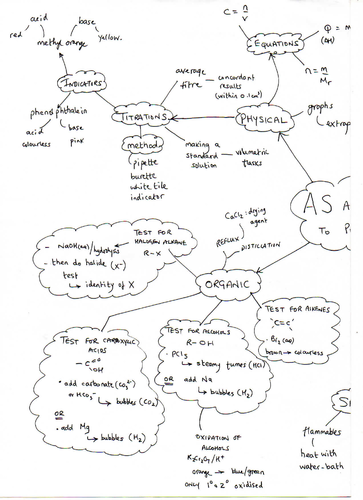 acid
base
red
methyl orange
yellow.
INDICATORS
phenolphthalein
acid
colourless
base
pink
average
titre
concordant
results
(within 0.1cm³)
TITRATIONS
method
pipette
burette
white tile
indicator
making a
standard
solution
volumetric
flasks
C = n/V
EQUATIONS
Q = m
(ΔH)
n = m/Mr
PHYSICAL
graphs
extrap
AS A
To P
CaCl₂ : drying
agent
REFLUX
DISTILLATION
ORGANIC
TEST FOR
HALOGENOALKANE
R-X
- NaOH(aq)/hydrolysis
- then do halide (X⁻)
test
↳ identity of X
TEST FOR CARBOXYLIC
ACIDS
-C=O
OH
• add carbonate (CO₃²⁻)
or HCO₃⁻
↳ bubbles (CO₂)
OR
• add Mg
↳ bubbles (H₂)
TEST FOR ALCOHOLS
R-OH
• PCl₅
↳ steamy fumes (HCl)
OR add Na
↳ bubbles (H₂)
OXIDATION OF
ALCOHOLS
K₂Cr₂O₇/H⁺
orange → blue/green
only 1° + 2° oxidised
TEST FOR ALKENES
C=C
• Br₂(aq)
brown → colourless
flammables
heat with
water-bath